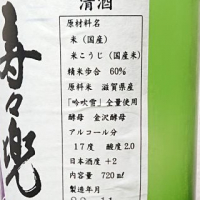 清酒
原材料名
米(国産)
米こうじ(国産米)
精米歩合 60%
原料米 滋賀県産
「吟吹雪」全量使用
酵母 金沢酵母
アルコール分
17度 酸度2.0
日本酒度+2
内容量 720ml
製造年月
寿々兜